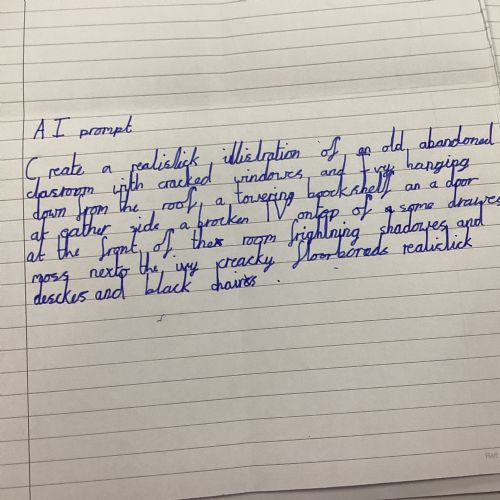 AI prompt
Create a realislick illistration of an old abandoned
clasroom with cracked windowes and ivy hanging
down from the roof, a towering bookshelf an a door
at eather side a brocken TV ontop of a some drawes
at the front of the room frightning shadowes and
moss nexto the ivy creacky floorboreds realislick
desckes and black chaires .